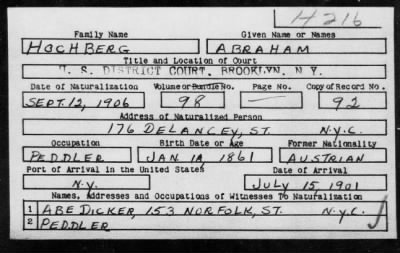 H 216
Family Name Given Name or Names
HOCHBERG ABRAHAM
Title and Location of Court
U. S. DISTRICT COURT, BROOKLYN, N. Y.
Date of Naturalization Volume or Bundle No. Page No. Copy of Record No.
SEPT. 12, 1906 98 — 92
Address of Naturalized Person
176 DELANCEY, ST. N.Y.C.
Occupation Birth Date or Age Former Nationality
PEDDLER JAN. 1861 AUSTRIAN
Port of Arrival in the United States Date of Arrival
N.Y. JULY 15, 1901
Names, Addresses and Occupations of Witnesses To Naturalization
1 ABE DICKER, 153 NORFOLK, ST. N.Y.C.
2 PEDDLER